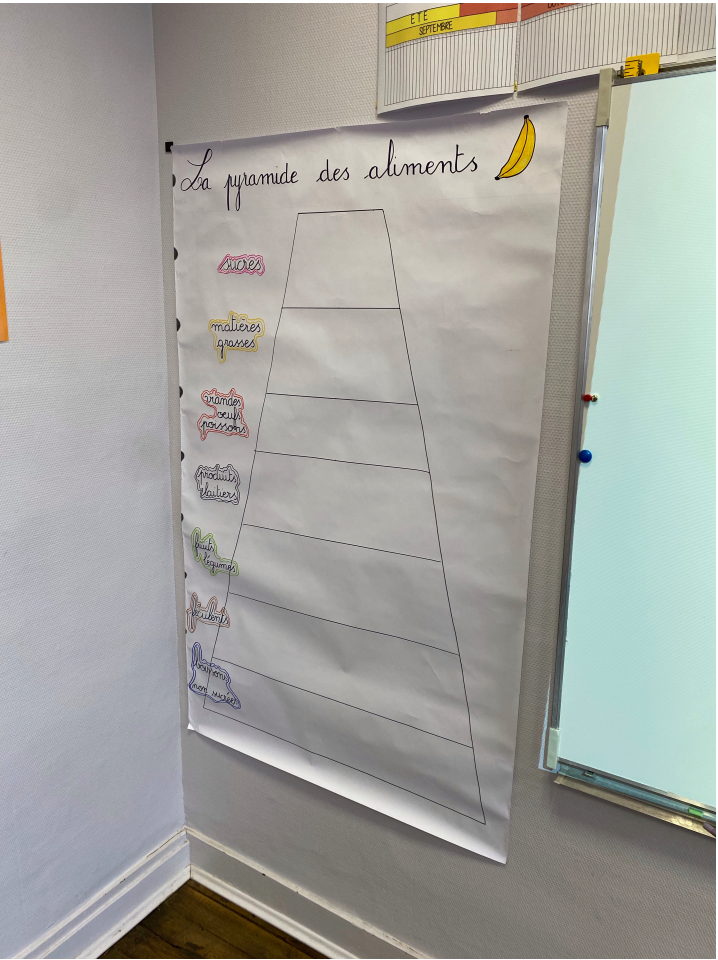 ÉTÉ
SEPTEMBRE
La pyramide des aliments
sucres
matières
grasses
viandes
oeufs
poissons
produits
laitiers
fruits
légumes
féculents
boissons
non sucrées